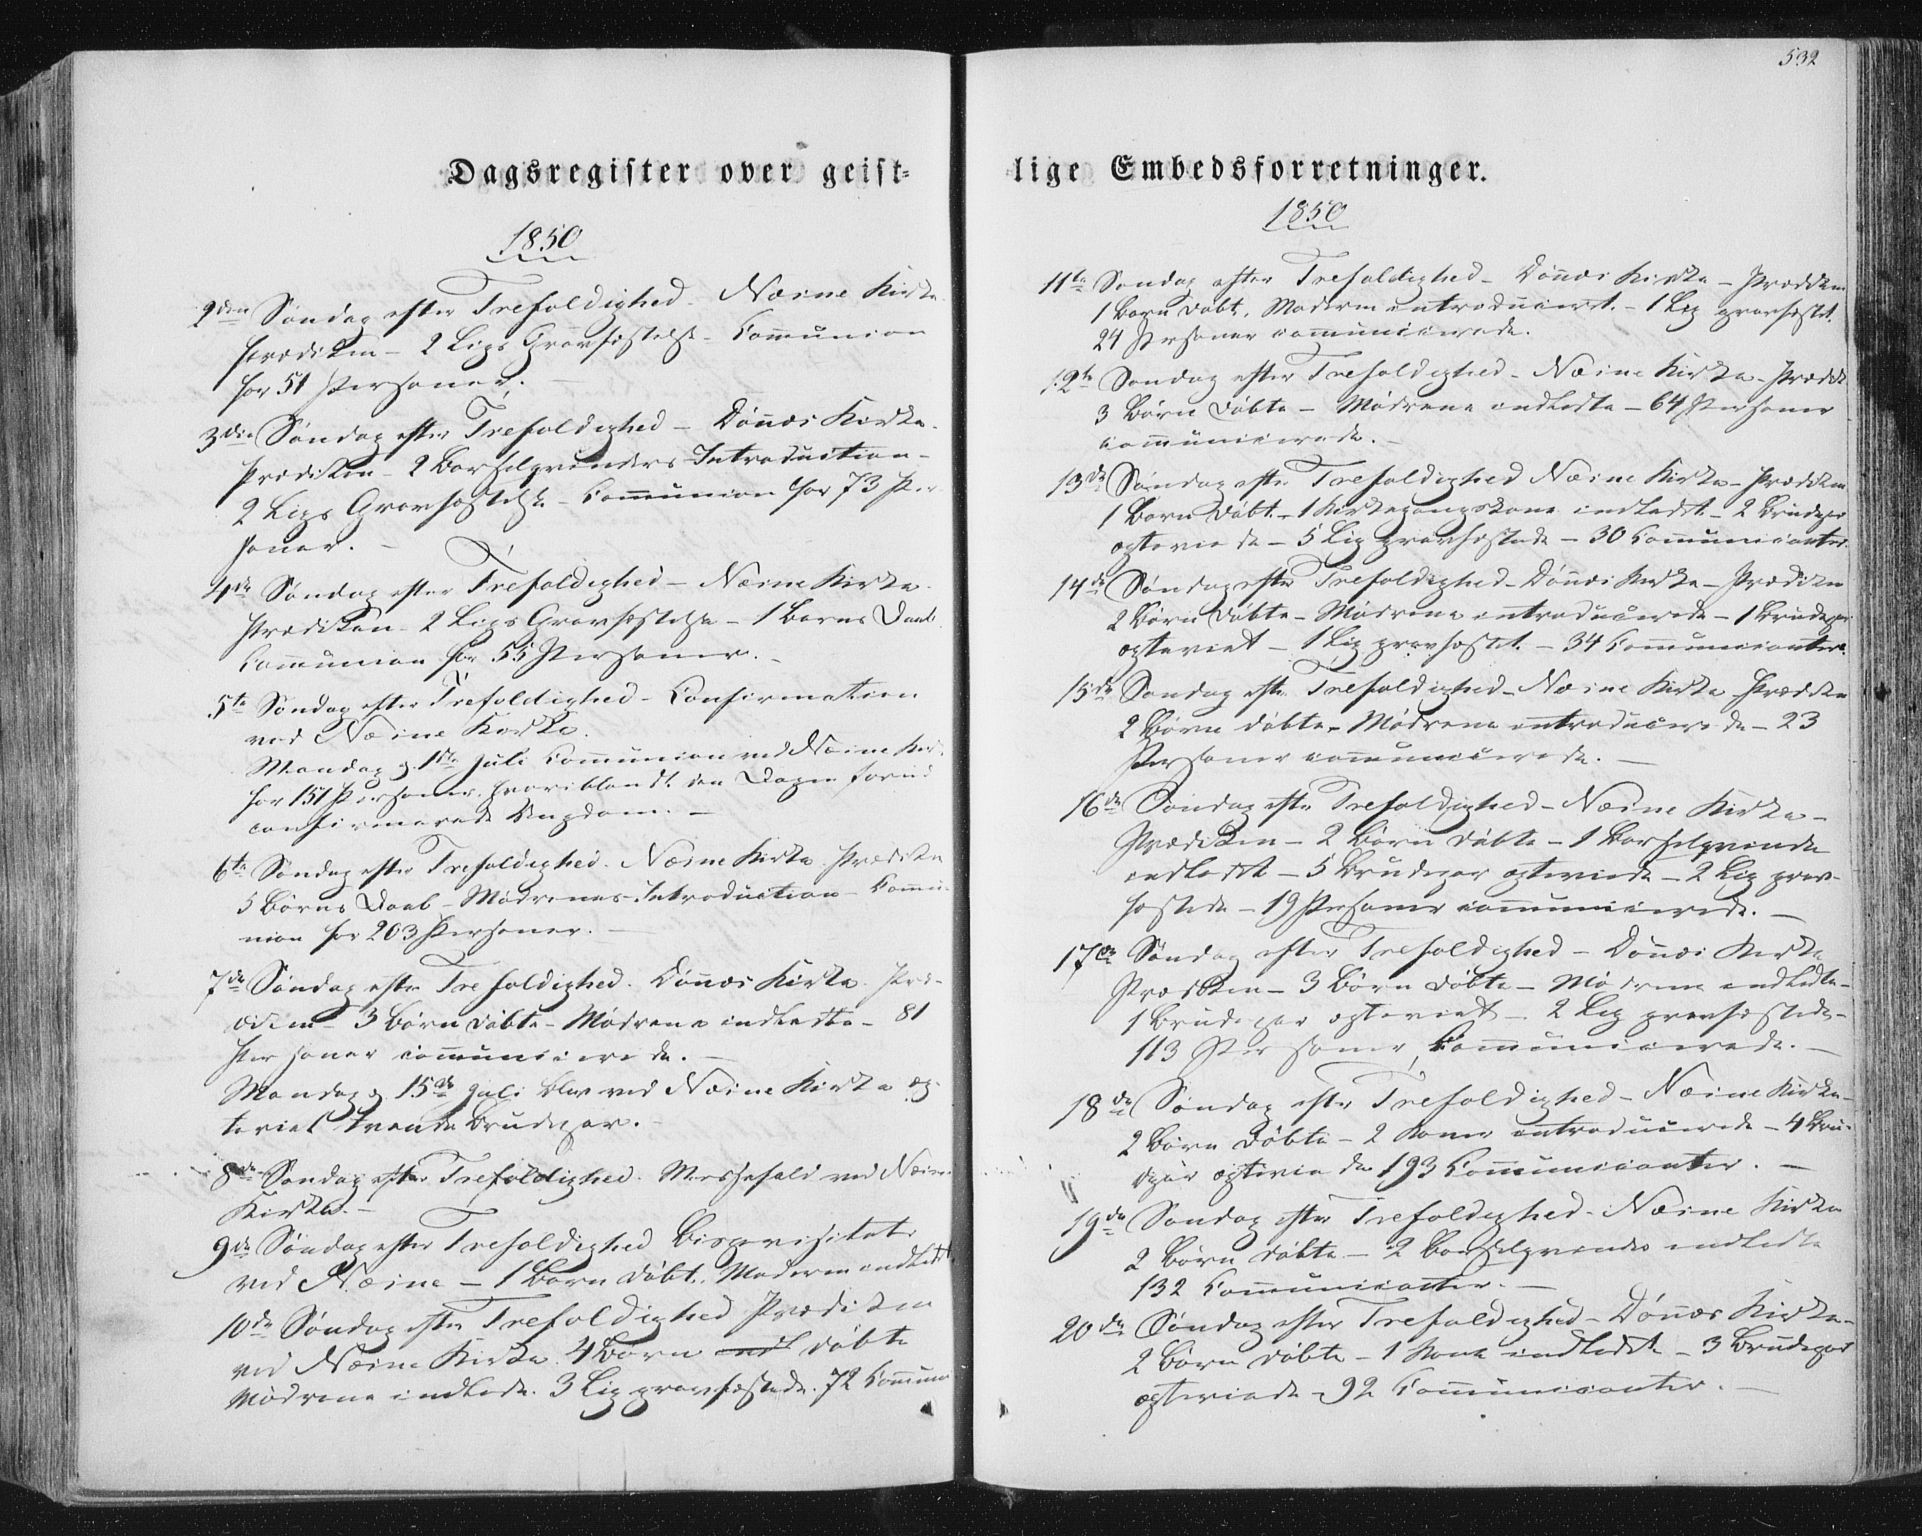 532
Dagsregister over geist-
1850
2den Søndag efter Trefoldighed - Næsne Kirke
Prædiken - 2 Ligs Gravfæstelse - Communion
for 51 Personer. -
3die Søndag efter Trefoldighed - Dønnæs Kirke -
Prædiken - 2 Barselqvinders Introduction -
2 Ligs Gravfæstelse - Communion for 73 Per-
soner. -
4de Søndag efter Trefoldighed - Næsne Kirke -
Prædiken - 2 Ligs Gravfæstelse - 1 Barns Daab
Communion for 55 Personer. -
5te Søndag efter Trefoldighed - Confirmation
ved Næsne Kirke.
Mandag d. 1ste Juli Communion ved Næsne Kirke
for 151 Personer, hvoriblandt den Dagen forud
confirmerede Ungdom. -
6te Søndag efter Trefoldighed. Næsne Kirke. Prædiken
5 Børns Daab - Mødrenes Introduction - Commu-
nion for 203 Personer. -
7de Søndag efter Trefoldighed. Dønnæs Kirke. Præ-
diken - 3 Børn døbte - Mødrene indledte - 81
Personer communicerede. -
Mandag d. 15de Juli blev ved Næsne Kirke æg-
teviet trende Brudepar. -
8de Søndag efter Trefoldighed. Messefald ved Næsne
Kirke. -
9de Søndag efter Trefoldighed Bispevisitats
ved Næsne - 1 Barn døbt. Moderen indledet
10de Søndag efter Trefoldighed Prædiken
ved Næsne Kirke. 4 Børn døbte
Mødrene indledte. 3 Lig gravfæstede. 72 Commun
lige Embedsforretninger.
1850
11te Søndag efter Trefoldighed - Dønnæs Kirke - Prædiken
1 Barn døbt, Moderen introduceret. - 1 Lig gravfæstet.
24 Personer communicerede.
12te Søndag efter Trefoldighed - Næsne Kirke - Prædik
3 Børn døbte - Mødrene indledte - 64 Personer
communicerede. -
13de Søndag efter Trefoldighed Næsne Kirke - Prædiken
1 Barn døbt - 1 Kirkegangskone indledet - 2 Brudepar
ægteviede - 5 Lig gravfæstede - 30 Communicanter.
14de Søndag efter Trefoldighed - Dønnæs Kirke - Prædiken
2 Børn døbte - Mødrene introducerede - 1 Brudepar
ægteviet - 1 Lig gravfæstet. - 34 Communicanter.
15de Søndag efter Trefoldighed - Næsne Kirke - Prædiken
2 Børn døbte - Mødrene introducerede - 23
Personer communicerede. -
16de Søndag efter Trefoldighed - Næsne Kirke -
Prædiken - 2 Børn døbte - 1 Barselqvinde
indledet - 5 Brudepar ægteviede - 2 Lig grav-
fæstede - 19 Personer communicerede. -
17de Søndag efter Trefoldighed - Dønnæs Kirke
Prædiken - 3 Børn døbte - Mødrene indledte -
1 Brudepar ægteviet - 2 Lig gravfæstede -
113 Personer communicerede. -
18de Søndag efter Trefoldighed - Næsne Kirke -
2 Børn døbte - 2 Koner introducerede - 4 Bru-
depar ægteviede 193 Communicanter. -
19de Søndag efter Trefoldighed - Næsne Kirke
2 Børn døbte - 2 Barselqvinder indledte
132 Communicanter. -
20de Søndag efter Trefoldighed - Dønnæs Kirke -
2 Børn døbte - 1 Kone indledet - 3 Brudepar
ægteviede - 92 Communicanter. -